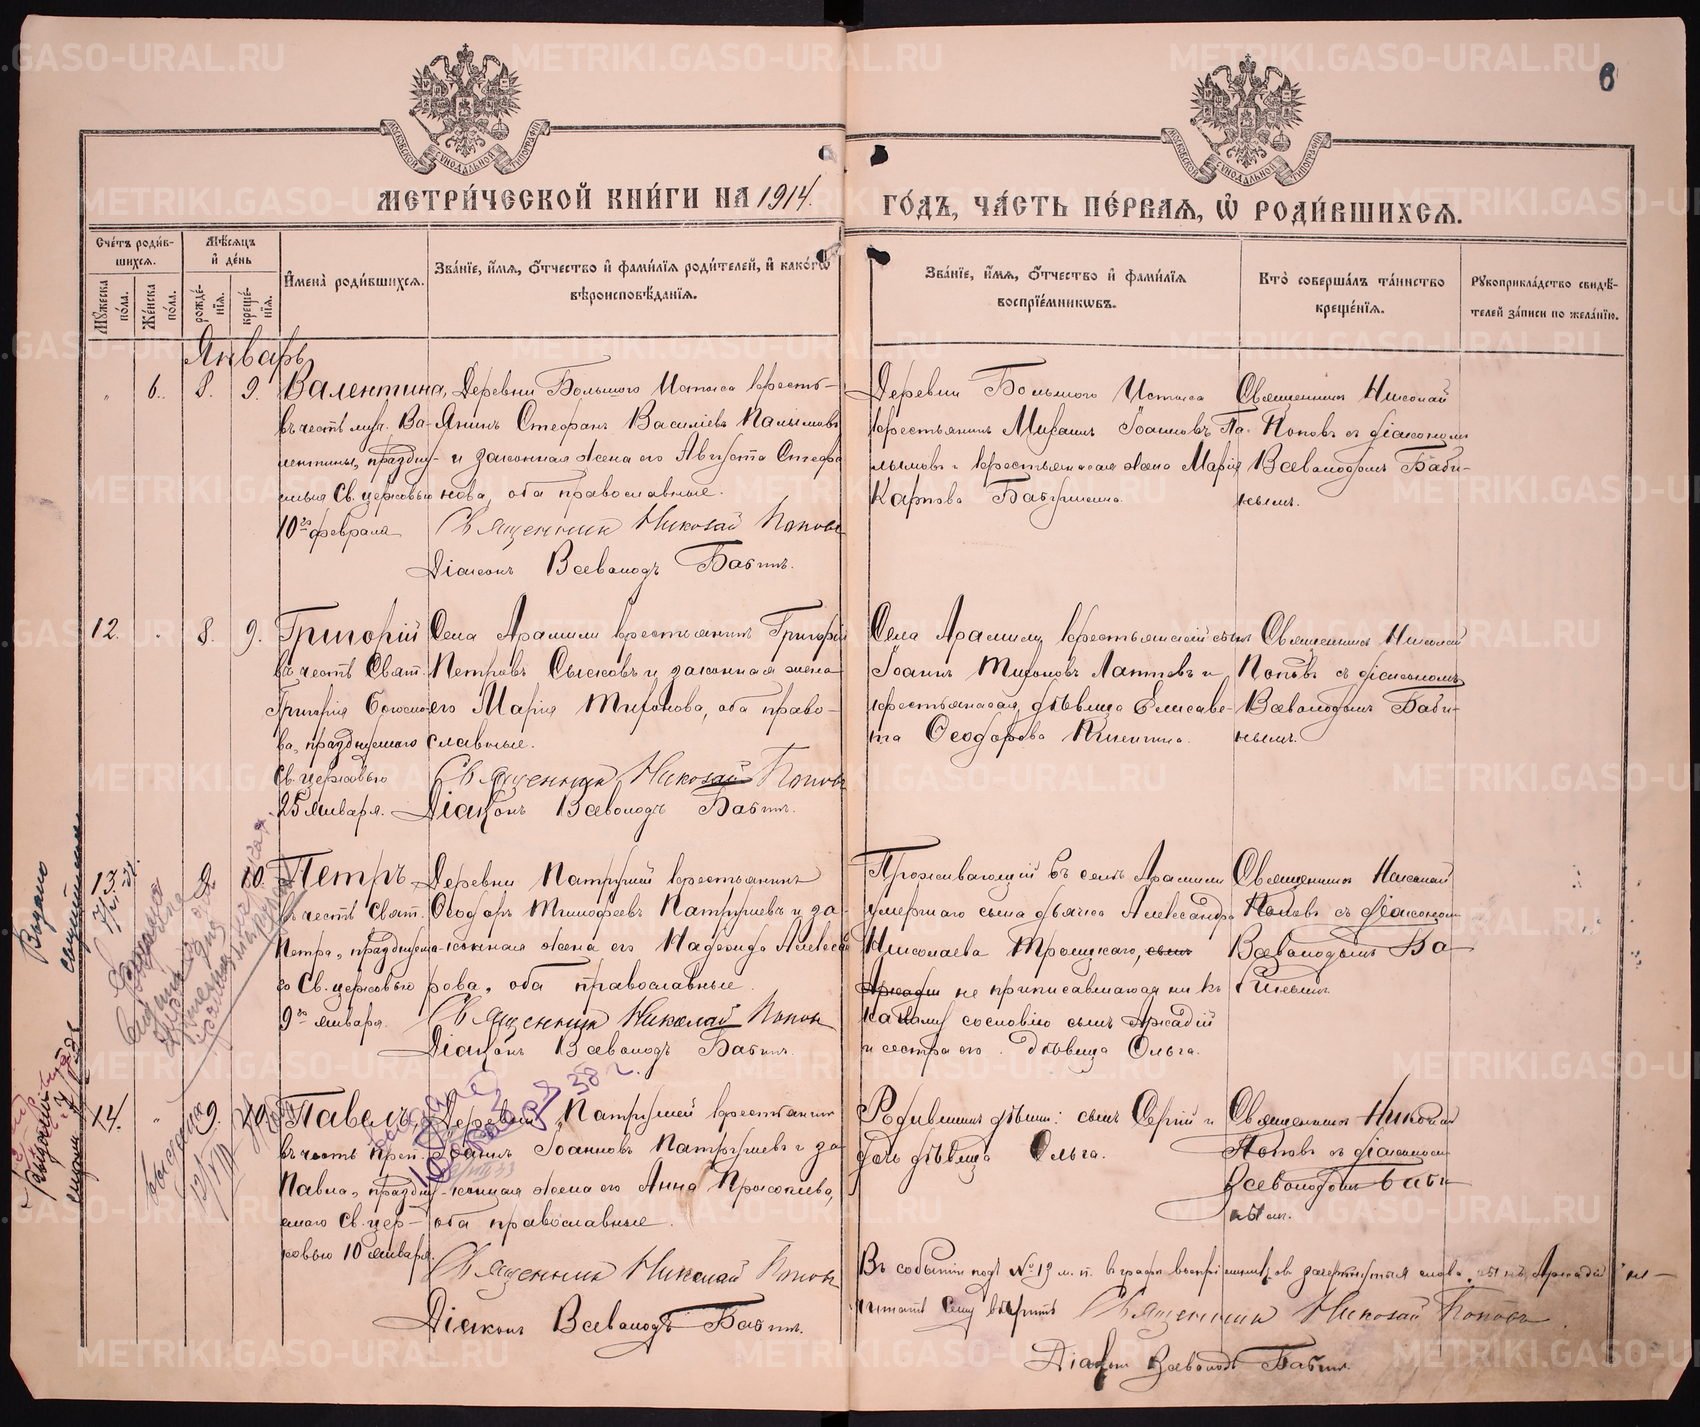 МЕТРИ́ЧЕСКОЙ КНИ́ГИ НА 1914.
ГО́ДЪ, ЧА́СТЬ ПЕ́РВАѦ, Ѡ҆ РОДИ́ВШИХСѦ.
6
Сче́тъ роди́в-
шихсѧ.
Мѣ́сѧцъ
и҆ де́нь
Мꙋ́жеска по́ла.
Же́нска по́ла.
рожде́-
нїѧ.
креще́-
нїѧ.
И҆мена̀ роди́вшихсѧ.
Зва́нїе, и҆́мѧ, ѻ҆́тчество и҆ фами́лїѧ роди́телей, и҆ како́гѡ
вѣроисповѣ́данїѧ.
Зва́нїе, и҆́мѧ, ѻ҆́тчество и҆ фами́лїѧ
воспрїе́мникѡвъ.
Кто̀ соверша́лъ та́инство
креще́нїѧ.
Рꙋкоприкла́дство свидѣ́-
телей за́писи по жела́нїю.
Январь
6. 8. 9.
Валентина,
въ честь муч. Ва-
лентины, праздну-
емыя Св. церковью
10го февраля
Деревни Большого Истока кресть-
янинъ Стефанъ Василіевъ Палымовъ
и законная жена его Августа Стефа
нова, оба православные.
Священникъ Николай Поповъ
Діаконъ Всеволодъ Бабинъ.
Деревни Большого Истока
крестьянинъ Михаилъ Іоанновъ Па-
лымовъ и крестьянская жена Марія
Карпова Бабушкина.
Священникъ Николай
Поповъ съ діакономъ
Всеволодомъ Баби-
нымъ.
12. 8. 9.
Григорій
въ честь Свят.
Григорія Богосло-
ва, празднуемаго
Св. церковью
25 января.
Села Арамили крестьянинъ Григорій
Петровъ Сысковъ и законная жена
его Марія Тихонова, оба право-
славные.
Священникъ Николай Поповъ
Діаконъ Всеволодъ Бабинъ.
Села Арамили крестьянскій сынъ
Іоаннъ Тихоновъ Лаптевъ и
крестьянская дѣвица Елисаве-
та Ѳеодорова
Священникъ Николай
Поповъ съ діакономъ
Всеволодомъ Баби-
нымъ.
13. 9. 10.
Петръ
въ честь Свят.
Петра, празднуема-
го Св. церковью
9го января.
Деревни Патрушей крестьянинъ
Ѳеодоръ Тимофеевъ Патрушевъ и за-
конная жена его Надежда Алексан
рова, оба православные.
Священникъ Николай Поповъ
Діаконъ Всеволодъ Бабинъ.
Проживающій въ селѣ Арамили
умершаго сына дьячка Александра
Николаева Троицкаго, сынъ
Аркадій не приписавшагося ни къ
какому сословію сынъ Аркадій
и сестра его дѣвица Ольга.
Священникъ Николай
Поповъ съ діакономъ
Всеволодомъ Ба
бинымъ
14. 9. 10.
Павелъ,
въ честь Преп.
Павла, праздну-
емаго Св. цер-
ковью 10 января.
Деревни Патрушей крестьянинъ
Іоаннъ Іоанновъ Патрушевъ и за
конная жена его Анна Прокопіева,
оба православные.
Священникъ Николай Поповъ
Діаконъ Всеволодъ Бабинъ.
Родившихъ дѣти: сынъ Сергій и
дочь дѣвица Ольга.
Священникъ Николай
Поповъ съ діакономъ
Всеволодомъ Баби
нымъ.
Въ событіи подъ № 13 м. п. въ графѣ воспріемниковъ зачеркнутыя слова „сынъ Аркадій“ не
читать сему вѣрить Священникъ Николай Поповъ.
Діаконъ Всеволодъ Бабинъ.
METRIKI.GASO-URAL.RU